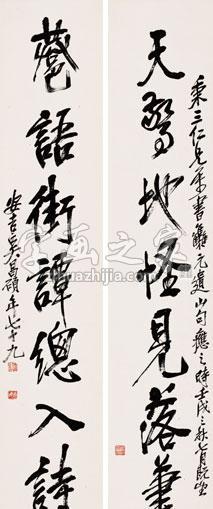 秉三仁兄屬書集元遺山句應之時壬戌之秋七月既望
天驚地怪見落筆
巷語街譚總入詩
安吉吳昌碩年七十九
字画之家
huazhijia.com